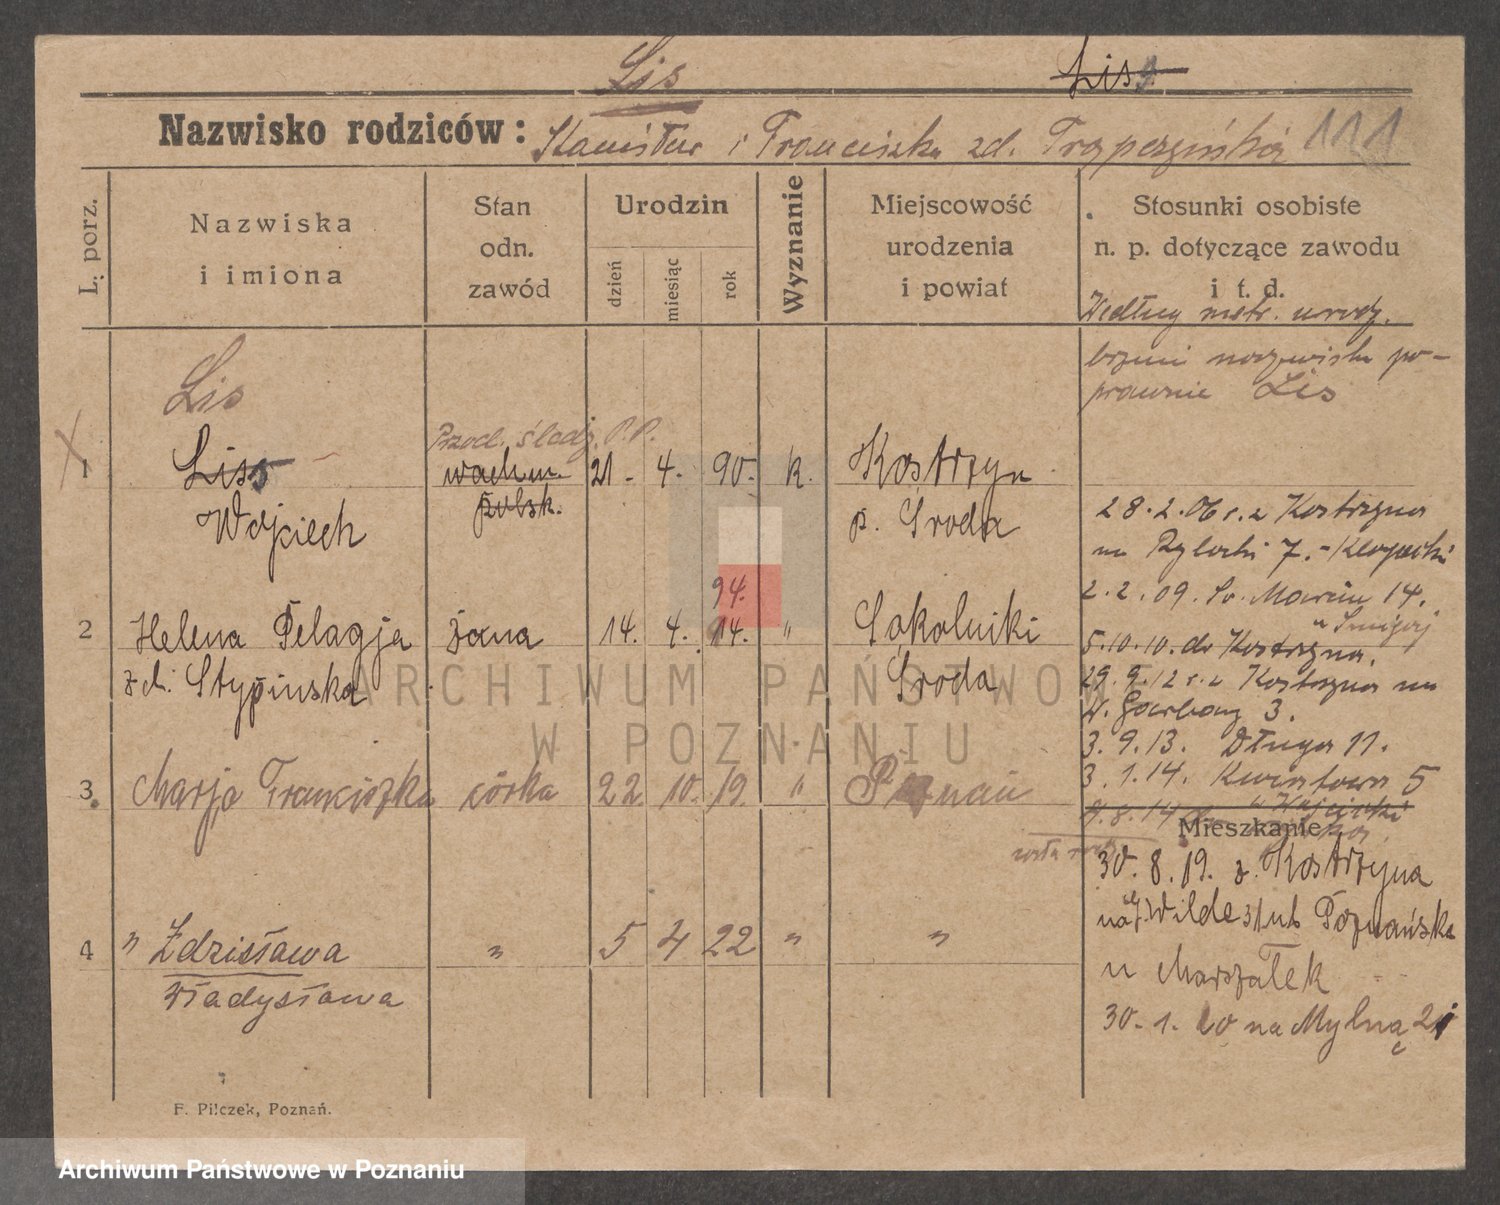 Lis
Liss
Nazwisko rodziców: Stanisław i Franciszka zd. 111
L. porz.
Nazwiska i imiona
Stan odn. zawód
Urodzin
dzień miesiąc rok
Wyznanie
Miejscowość urodzenia i powiat
Stosunki osobiste
n. p. dotyczące zawodu
i t. d.
Według metr. urodz.
brzmi nazwisko po-
prawnie Lis
Lis
Przod. śledz. P.P.
1 Liss wachm. 21. 4. 90. k. Kostrzyn
Wojciech polsk. p. Środa
28.2.06 r. z Kostrzyna
na Rybaki 7.
2.2.09. Św. Marcin 14.
94.
2 Helena Pelagja żona 14. 4. 14. " Sokolniki
5.10.10. do Kostrzyna.
zd. Stypinska Środa
29.9.12 r. z Kostrzyna na
W. Garbary 3.
3.9.13. Długa 11.
3 Marja Franciszka córka 22 10. 19. " Poznań
3.1.14. Kwiatowa 5
4.8.14
Mieszkanie
30.8.19. z Kostrzyna
na Wilde Poznańska
u Marszałek
4 " Zdzisława " 5 4 22 " "
Władysława
30.1.20 na Mylną 21
F. Pilczek, Poznań.
ARCHIWUM PAŃSTWOWE
W POZNANIU
Archiwum Państwowe w Poznaniu